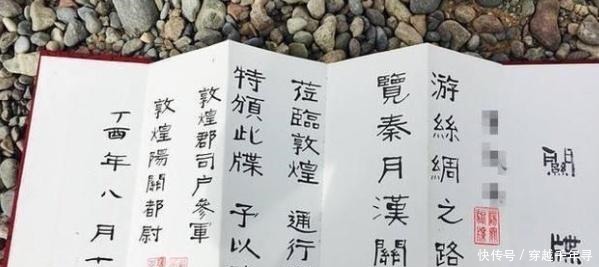 關牒
游絲綢之路
覽秦月漢關
莅臨敦煌 通行
特頒此牒 予以
敦煌郡司户參軍
敦煌陽關都尉
丁酉年八月十
快传号 / 穿越千年寻